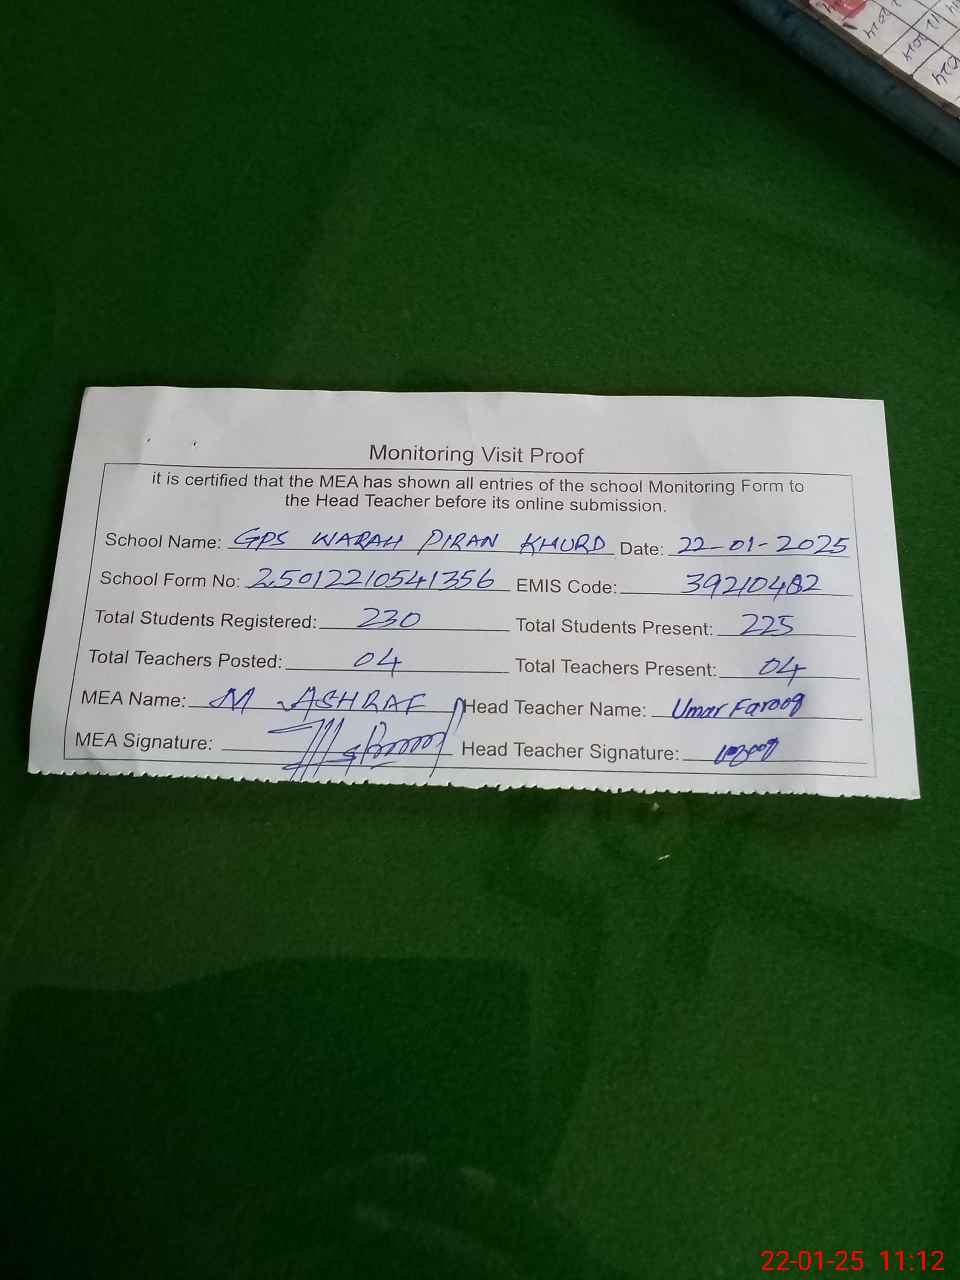 Monitoring Visit Proof
it is certified that the MEA has shown all entries of the school Monitoring Form to
the Head Teacher before its online submission.
School Name: GPS WARAH PIRAN KHURD Date: 22-01-2025
School Form No: 25012210541356 EMIS Code: 39210482
Total Students Registered: 230 Total Students Present: 225
Total Teachers Posted: 04 Total Teachers Present: 04
MEA Name: M ASHRAF Head Teacher Name: Umar Farooq
MEA Signature: Head Teacher Signature:
22-01-25 11:12